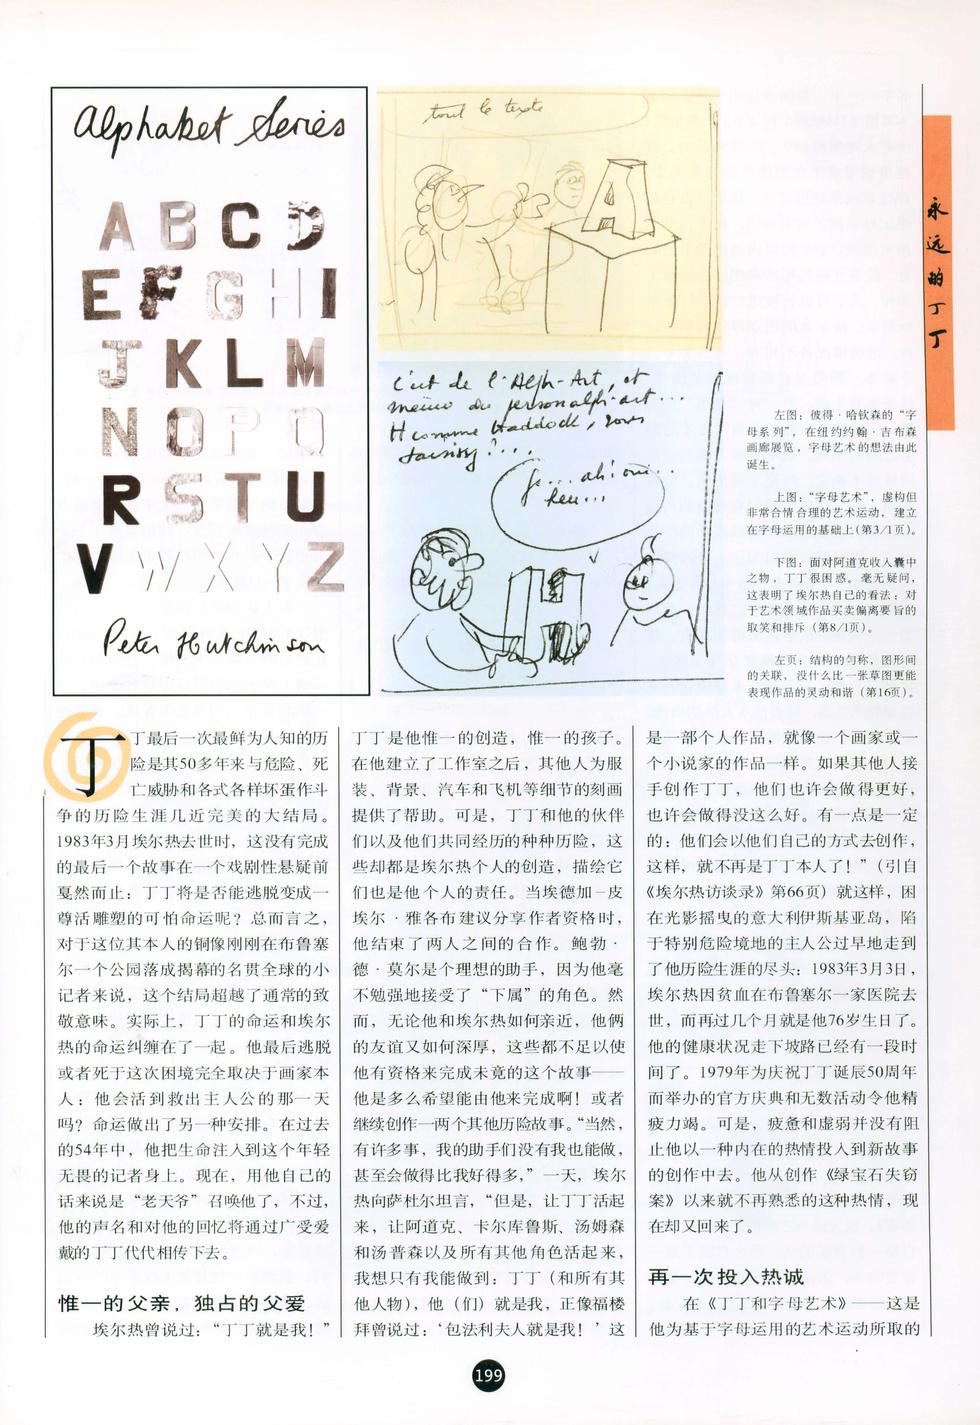 Alphabet Series
A B C D
E F G H I
J K L M
N O P Q
R S T U
V W X Y Z
Peter Hutchinson
tout le texte
A
c'est de l'Alph-Art, et
même du personalph-art...
H comme Haddock, vous
saisissez?...
Je... ah! oui...
heu...
H
永远的丁丁
左图：彼得·哈钦森的“字
母系列”，在纽约约翰·吉布森
画廊展览，字母艺术的想法由此
诞生。
上图：“字母艺术”，虚构但
非常合情合理的艺术运动，建立
在字母运用的基础上(第3/1页)。
下图：面对阿道克收入囊中
之物，丁丁很困惑。毫无疑问，
这表明了埃尔热自己的看法：对
于艺术领域作品买卖偏离要旨的
取笑和排斥（第8/1页）。
左页：结构的匀称，图形间
的关联，没什么比一张草图更能
表现作品的灵动和谐（第16页）。
丁丁最后一次最鲜为人知的历
险是其50多年来与危险、死
亡威胁和各式各样坏蛋作斗
争的历险生涯几近完美的大结局。
1983年3月埃尔热去世时，这没有完成
的最后一个故事在一个戏剧性悬疑前
戛然而止：丁丁将是否能逃脱变成一
尊活雕塑的可怕命运呢？总而言之，
对于这位其本人的铜像刚刚在布鲁塞
尔一个公园落成揭幕的名贯全球的小
记者来说，这个结局超越了通常的致
敬意味。实际上，丁丁的命运和埃尔
热的命运纠缠在了一起。他最后逃脱
或者死于这次困境完全取决于画家本
人：他会活到救出主人公的那一天
吗？命运做出了另一种安排。在过去
的54年中，他把生命注入到这个年轻
无畏的记者身上。现在，用他自己的
话来说是“老天爷”召唤他了，不过，
他的声名和对他的回忆将通过广受爱
戴的丁丁代代相传下去。
惟一的父亲，独占的父爱
埃尔热曾说过：“丁丁就是我！”
丁丁是他惟一的创造，惟一的孩子。
在他建立了工作室之后，其他人为服
装、背景、汽车和飞机等细节的刻画
提供了帮助。可是，丁丁和他的伙伴
们以及他们共同经历的种种历险，这
些却都是埃尔热个人的创造，描绘它
们也是他个人的责任。当埃德加-皮
埃尔·雅各布建议分享作者资格时，
他结束了两人之间的合作。鲍勃·
德·莫尔是个理想的助手，因为他毫
不勉强地接受了“下属”的角色。然
而，无论他和埃尔热如何亲近，他俩
的友谊又如何深厚，这些都不足以使
他有资格来完成未竟的这个故事——
他是多么希望能由他来完成啊！或者
继续创作一两个其他历险故事。“当然，
有许多事，我的助手们没有我也能做，
甚至会做得比我好得多，”一天，埃尔
热向萨杜尔坦言，“但是，让丁丁活起
来，让阿道克、卡尔库鲁斯、汤姆森
和汤普森以及所有其他角色活起来，
我想只有我能做到：丁丁（和所有其
他人物），他（们）就是我，正像福楼
拜曾说过：‘包法利夫人就是我！’这
是一部个人作品，就像一个画家或一
个小说家的作品一样。如果其他人接
手创作丁丁，他们也许会做得更好，
也许会做得没这么好。有一点是一定
的：他们会以他们自己的方式去创作，
这样，就不再是丁丁本人了！”（引自
《埃尔热访谈录》第66页）就这样，困
在光影摇曳的意大利伊斯基亚岛，陷
于特别危险境地的主人公过早地走到
了他历险生涯的尽头：1983年3月3日，
埃尔热因贫血在布鲁塞尔一家医院去
世，而再过几个月就是他76岁生日了。
他的健康状况走下坡路已经有一段时
间了。1979年为庆祝丁丁诞辰50周年
而举办的官方庆典和无数活动令他精
疲力竭。可是，疲惫和虚弱并没有阻
止他以一种内在的热情投入到新故事
的创作中去。他从创作《绿宝石失窃
案》以来就不再熟悉的这种热情，现
在却又回来了。
再一次投入热诚
在《丁丁和字母艺术》——这是
他为基于字母运用的艺术运动所取的
199